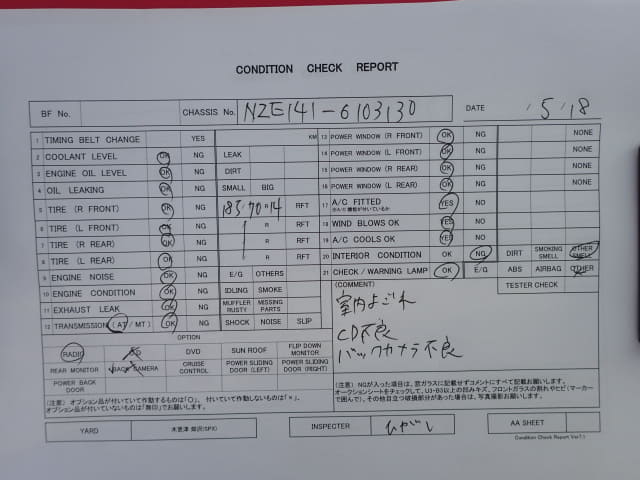 CONDITION CHECK REPORT
BF No. CHASSIS No. NZE141-6103130 DATE 5/18
1 TIMING BELT CHANGE YES KM
2 COOLANT LEVEL OK NG LEAK
3 ENGINE OIL LEVEL OK NG DIRT
4 OIL LEAKING OK NG SMALL BIG
5 TIRE (R FRONT) OK NG R RFT
6 TIRE (L FRONT) OK NG R RFT
7 TIRE (R REAR) OK NG R RFT
8 TIRE (L REAR) OK NG R RFT
9 ENGINE NOISE OK NG E/G OTHERS
10 ENGINE CONDITION OK NG IDLING SMOKE
11 EXHAUST LEAK OK NG MUFFLER RUSTY MISSING PARTS
12 TRANSMISSION (AT / MT) OK NG SHOCK NOISE SLIP
OPTION
RADIO CD DVD SUN ROOF FLIP DOWN MONITOR
REAR MONITOR BACK CAMERA CRUISE CONTROL POWER SLIDING DOOR (LEFT) POWER SLIDING DOOR (RIGHT)
POWER BACK DOOR
(注意) オプション品が付いていて作動するものは「○」、付いていて作動しないものは「×」、
オプション品が付いていないものは「無印」でお願いします。
13 POWER WINDOW (R FRONT) OK NG NONE
14 POWER WINDOW (L FRONT) OK NG NONE
15 POWER WINDOW (R REAR) OK NG NONE
16 POWER WINDOW (L REAR) OK NG NONE
17 A/C FITTED YES NO
18 WIND BLOWS OK YES NO
19 A/C COOLS OK YES NO
20 INTERIOR CONDITION OK NG DIRT SMOKING SMELL OTHER SMELL
21 CHECK / WARNING LAMP OK E/G ABS AIRBAG OTHER
(COMMENT) TESTER CHECK
室内よごれ
CD不良
バックカメラ不良
(注意) NGが入った項目は、窓ガラスに記載せずコメントにすべて記載お願いします。
オークションシートをチェックして、U3・B3以上の凹みキズ、フロントガラスの割れやヒビ(マーカー
で囲んで)、その他目立つ破損部分があった場合は、写真撮影お願いします。
YARD INSPECTER ひがし AA SHEET
Condition Check Report Ver7.1